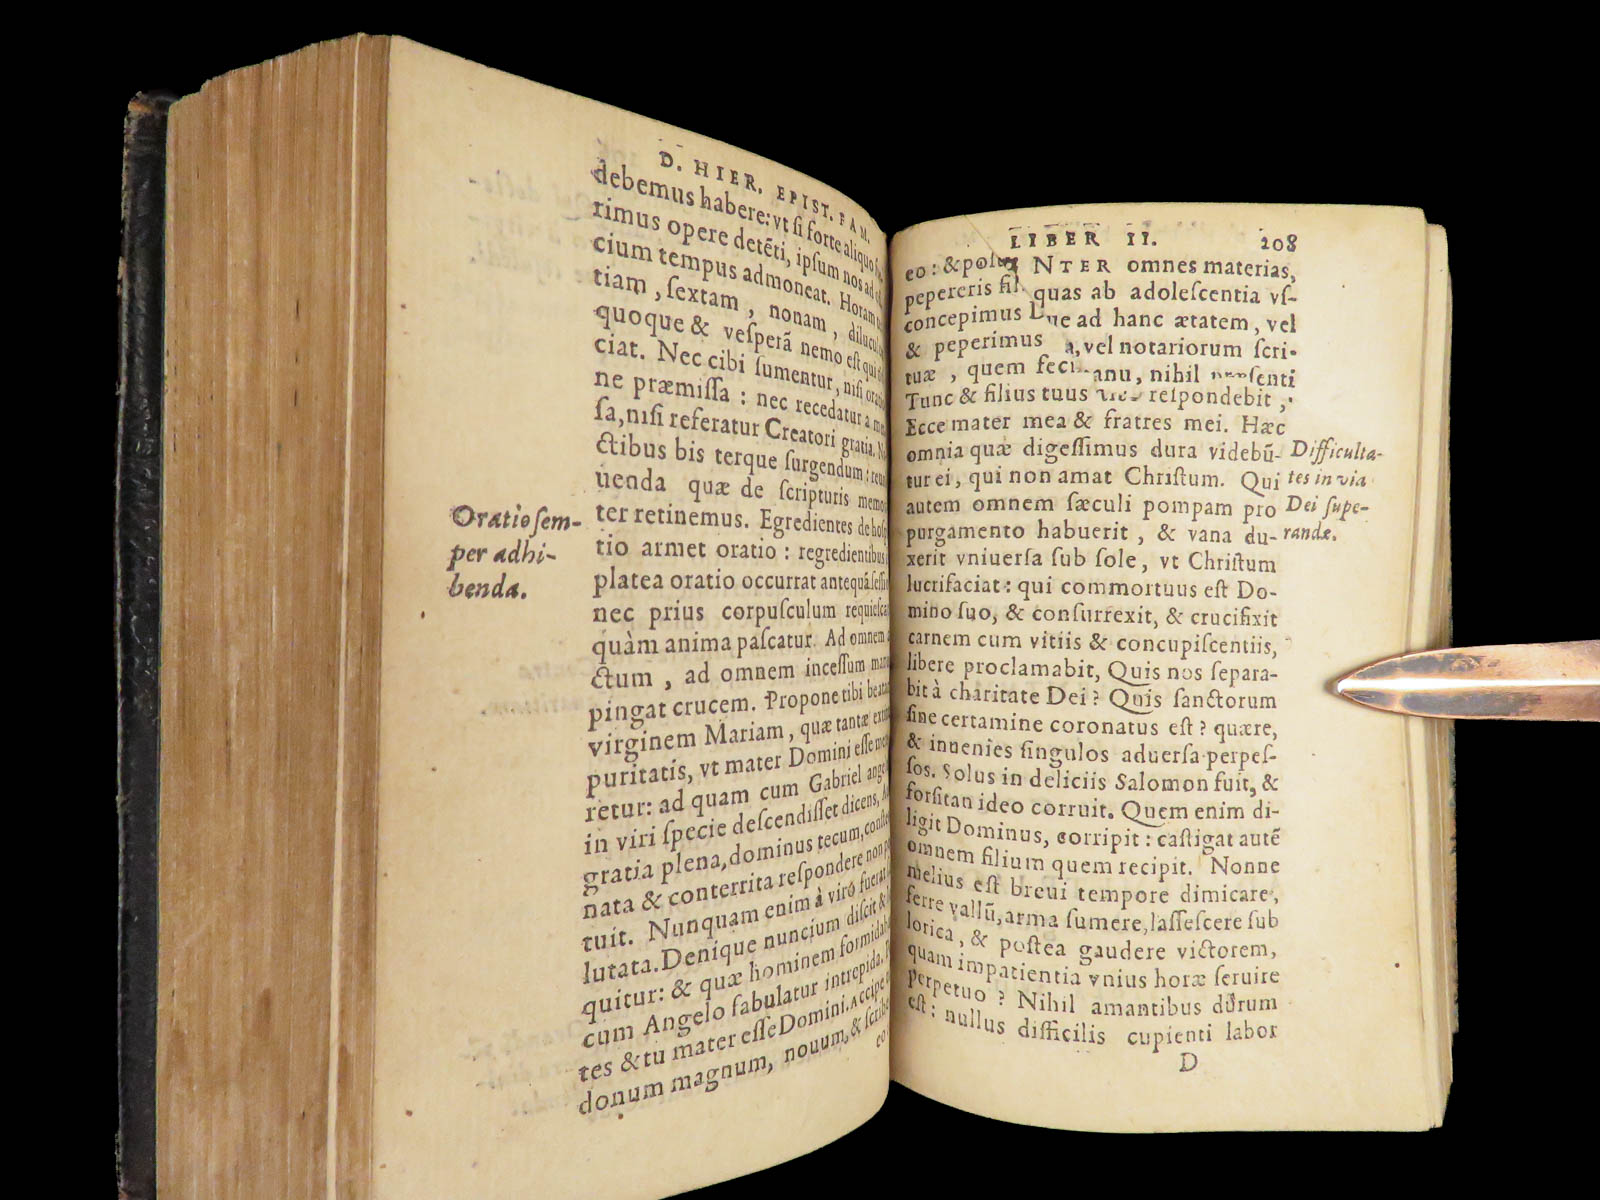 D. HIER. EPIST. FAM.
debemus habere: vt ſi forte aliquo
rimus opere detēti, ipſum nos ad
cium tempus admoneat. Horam
tiam, ſextam, nonam, dilucul
quoque & veſperā nemo eſt qui
ciat. Nec cibi ſumentur, niſi oratio
ne præmiſſa: nec recedatur a
ſa, niſi referatur Creatori gratia.
ctibus bis terque ſurgendum:
uenda quæ de ſcripturis memo
ter retinemus. Egredientes de hoſp
tio armet oratio: regredientibus
platea oratio occurrat antequā ſeſſio
nec prius corpuſculum requieſca
quàm anima paſcatur. Ad omnem
ctum, ad omnem inceſſum manu
pingat crucem. Propone tibi beatam
virginem Mariam, quæ tantæ
puritatis, vt mater Domini eſſe
retur: ad quam cum Gabriel ange
in viri ſpecie deſcendiſſet dicens,
gratia plena, dominus tecum, conſte
nata & conterrita reſpondere non
tuit. Nunquam enim à viro fuerat
lutata. Denique nuncium diſcit &
quitur: & quæ hominem formidab
cum Angelo fabulatur intrepida.
tes & tu mater eſſe Domini. Accipe
donum magnum, nouum, & ſcribe
eo
Oratio ſem-
per adhi-
benda.
LIBER II. 208
eo: & poſu NTER omnes materias,
pepereris fil quas ab adoleſcentia vſ-
concepimus que ad hanc ætatem, vel
& peperimus a, vel notariorum ſcri-
tuæ, quem feci anu, nihil ſenti
Tunc & filius tuus reſpondebit,
Ecce mater mea & fratres mei. Hæc
omnia quæ digeſſimus dura videbū-
tur ei, qui non amat Chriſtum. Qui
autem omnem ſæculi pompam pro
purgamento habuerit, & vana du-
xerit vniuerſa ſub ſole, vt Chriſtum
lucrifaciat: qui commortuus eſt Do-
mino ſuo, & conſurrexit, & crucifixit
carnem cum vitiis & concupiſcentiis,
libere proclamabit, Quis nos ſepara-
bit à charitate Dei? Quis ſanctorum
ſine certamine coronatus eſt? quære,
& inuenies ſingulos aduerſa perpeſ-
ſos. Solus in deliciis Salomon fuit, &
forſitan ideo corruit. Quem enim di-
ligit Dominus, corripit: caſtigat autē
omnem filium quem recipit. Nonne
melius eſt breui tempore dimicare,
ferre vallū, arma ſumere, laſſeſcere ſub
lorica, & poſtea gaudere victorem,
quam impatientia vnius horæ ſeruire
perpetuo? Nihil amantibus durum
eſt: nullus difficilis cupienti labor
D
Difficulta-
tes in via
Dei ſupe-
randæ.